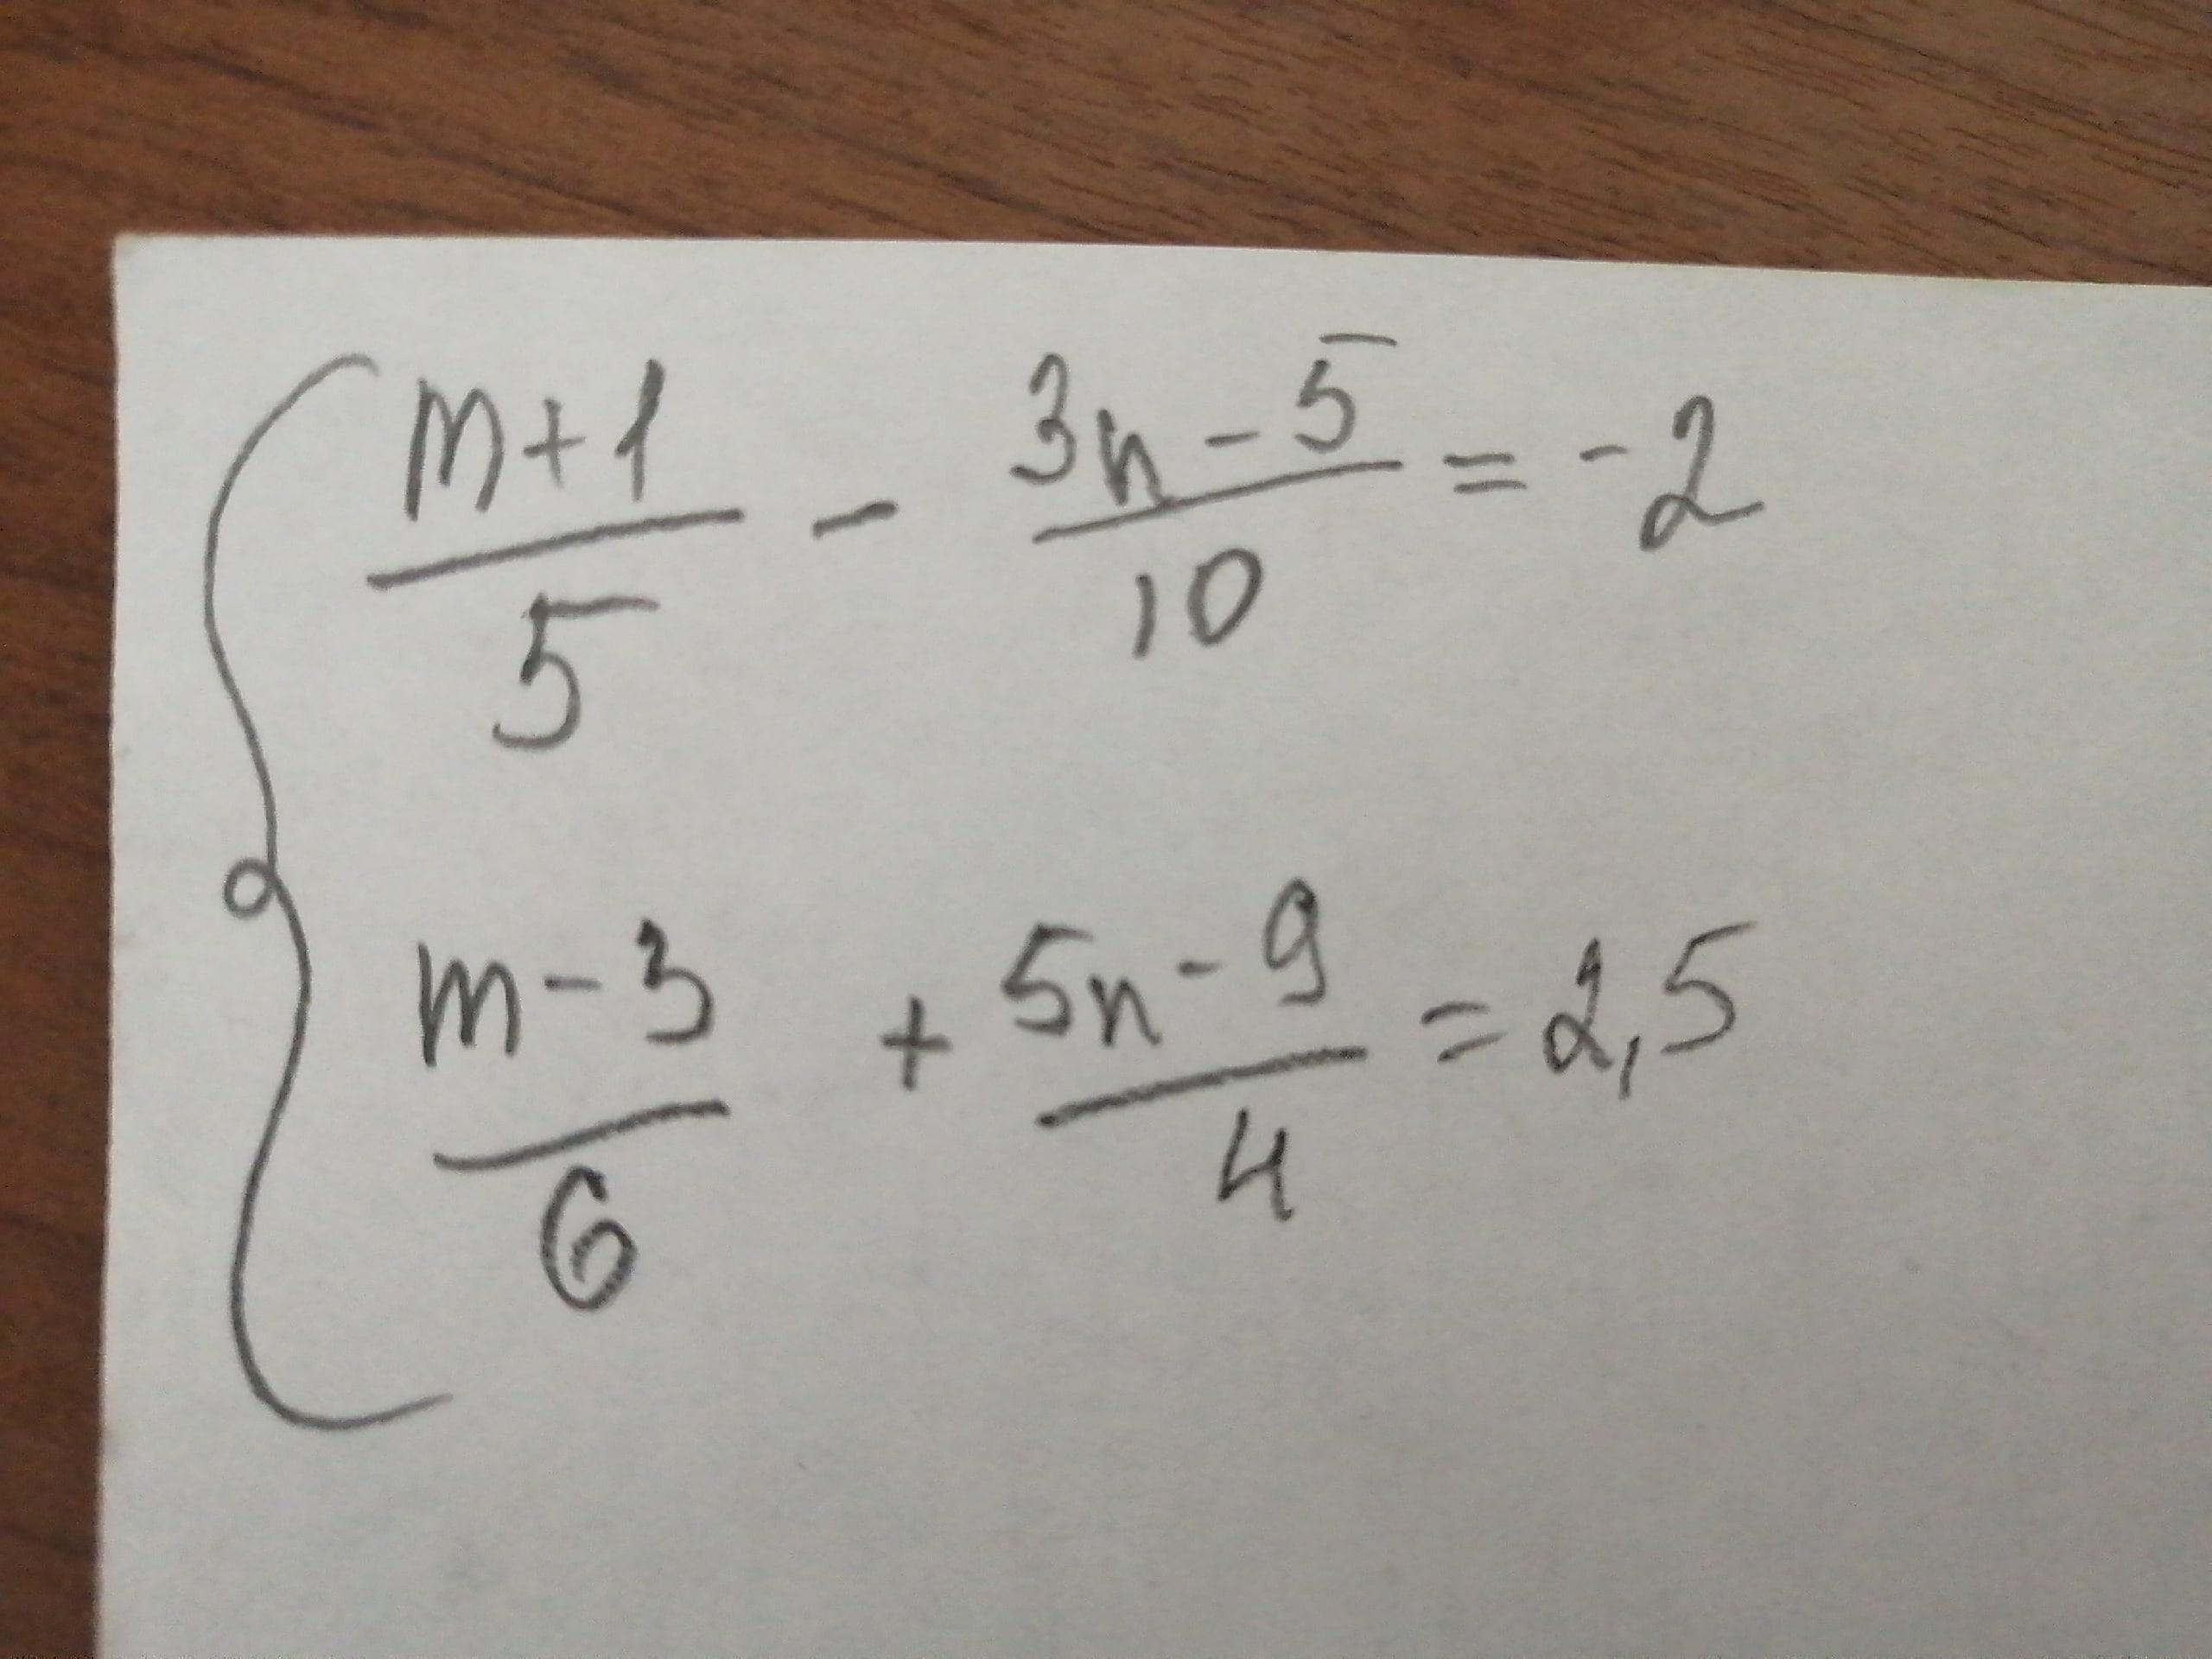 m+1 / 5 - 3n-5 / 10 = -2
m-3 / 6 + 5n-9 / 4 = 2,5